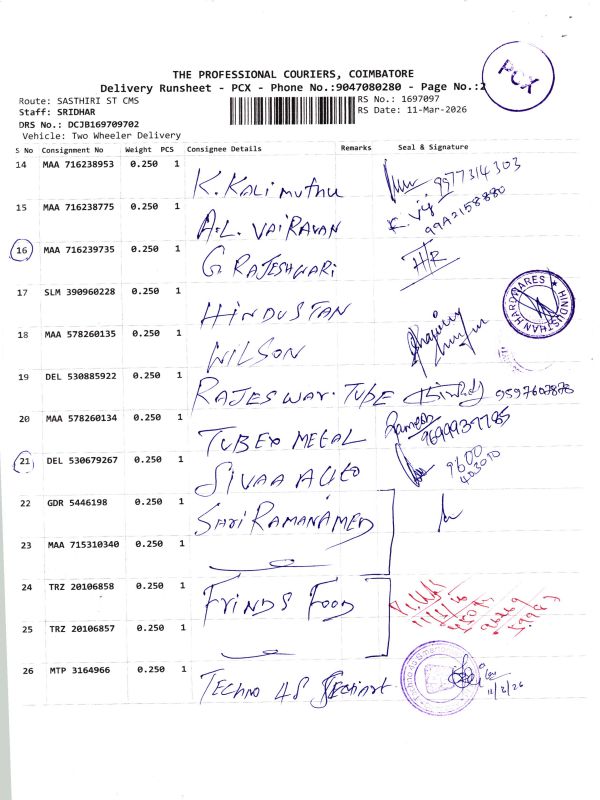 PCX
THE PROFESSIONAL COURIERS, COIMBATORE
Delivery Runsheet - PCX - Phone No.:9047080280 - Page No.:2
Route: SASTHIRI ST CMS
RS No.: 1697097
Staff: SRIDHAR
RS Date: 11-Mar-2026
DRS No.: DCJB169709702
Vehicle: Two Wheeler Delivery
S No Consignment No Weight PCS Consignee Details Remarks Seal & Signature
14 MAA 716238953 0.250 1 K. KALIMUTHU 9977314303
15 MAA 716238775 0.250 1 A.L. VAIRAVAN K. Vij 99A2158880
16 MAA 716239735 0.250 1 G RAJESHWARI H/R
17 SLM 390960228 0.250 1 HINDUSTAN HINDUSTHAN HARDWARES
18 MAA 578260135 0.250 1 WILSON
19 DEL 530885922 0.250 1 RAJESWAR. TUBE 9597607878
20 MAA 578260134 0.250 1 TUBEX METAL Ramesh 9699937785
21 DEL 530679267 0.250 1 SIVAA AUTO 9600 403010
22 GDR 5446198 0.250 1 SHRI RAMANAMED
23 MAA 715310340 0.250 1
24 TRZ 20106858 0.250 1 FRINDS FOOD
25 TRZ 20106857 0.250 1
26 MTP 3164966 0.250 1 TECHNO 48